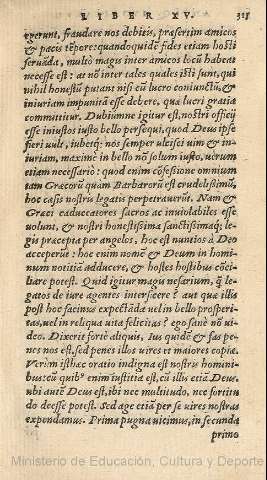 LIBER XV. 315
egerunt, fraudare nos debitis, præsertim amicos
& pacis tẽpore: quandoquidẽ fides etiam hosti
seruãda, multo magis inter amicos locũ habeat
necesse est: at nõ inter tales quales isti sunt, qui
nihil honestũ putant nisi cũ lucro coniunctũ, &
iniuriam impunitã esse debere, quæ lucri gratia
committitur. Dubiumne igitur est, nostri officij
esse iniustos iusto bello persequi, quod Deus ipse
fieri uult, iubetq́; nos semper ulcisci uim & in-
iuriam, maxime in bello nõ solum iusto, uerum
etiam necessario: quod enim cõfessione omnium
tam Græcorũ quam Barbarorũ est crudelissimũ,
hoc casis nostris legatis perpetrauerũt. Nam &
Græci caduceatores sacros ac inuiolabiles esse
uolunt, & nostri honestissima sanctissimaq́;
gis præcepta per angelos, hoc est nuntios à Deo
acceperũt: hoc enim nomẽ & Deum in homi-
num notitiã adducere, & hostes hostibus cõci-
liare potest. Quid igitur magis nefarium, q̃ le-
gatos de iure agentes interficere? aut quæ illis
post hoc facinus expectãda uel in bello prosperi-
tas, uel in reliqua uita felicitas? ego sanè nõ ui-
deo. Dixerit fortè aliquis, Ius quidẽ & fas pe-
nes nos est, sed penes illos uires et maiores copiæ.
Verùm isthæc oratio indigna est nostris homini-
bus: cũ quibꝰ enim iustitia est, cũ illis etiã Deus.
ubi autẽ Deus est, ibi nec multitudo, nec fortitu
do deesse potest. Sed age etiã per se uires nostras
expendamus. Prima pugna uicimus, in secunda
primo
Ministerio de Educación, Cultura y Deporte